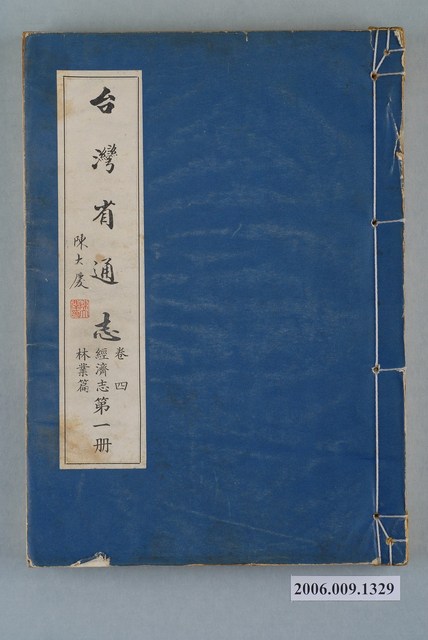 台灣省通志
陳大慶
卷四
經濟志
林業篇
第一册
2006.009.1329